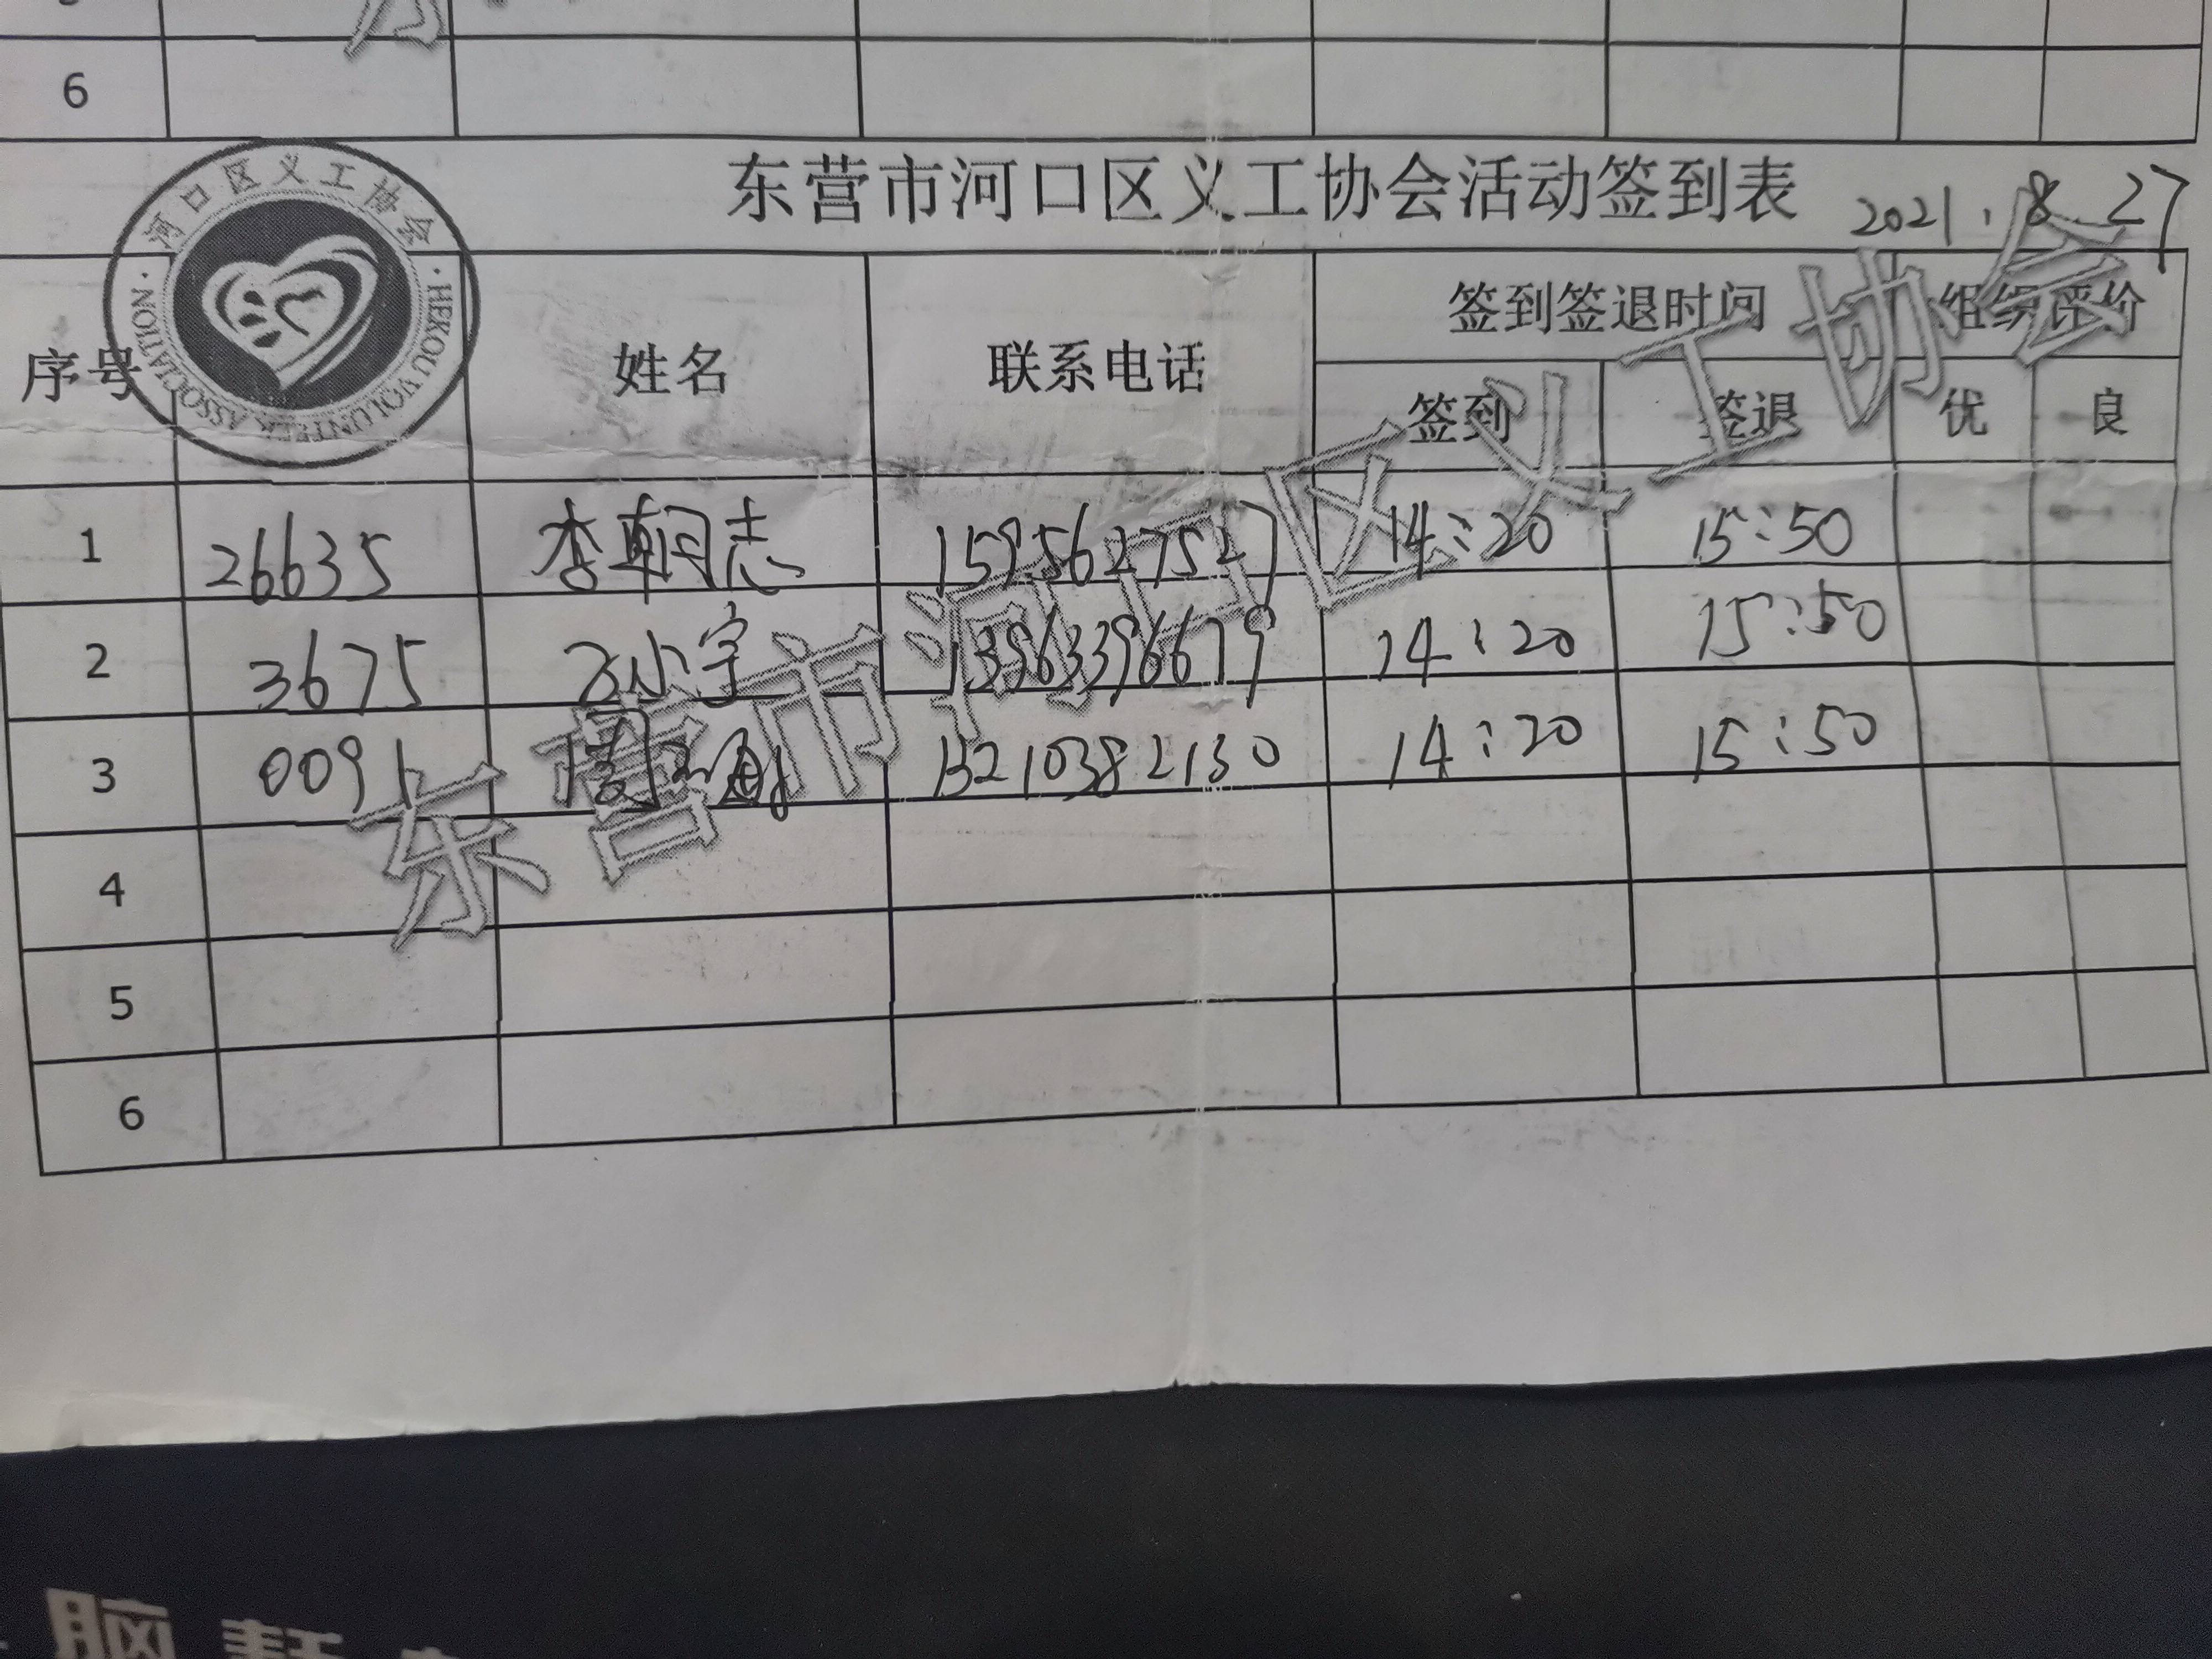 6
东营市河口区义工协会活动签到表 2021.8.27
河口区义工协会
HEKOU VOLUNTEER ASSOCIATION
序号 姓名 联系电话 签到签退时间 组织评价
签到 签退 优 良
1 26635 李朝志 1595627527 14:20 15:50
2 3675 小宇 13963396679 14:20 15:50
3 0091 13210382130 14:20 15:50
4
5
6
东营市河口区义工协会
脑